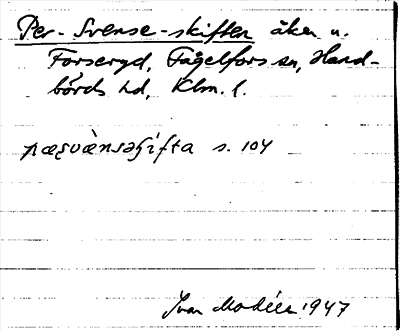 Per-Svense-skiften åker u.
Forseryd, Fågelfors sn, Hand-
börds hd, Klm. l.
pæʂvæ̀nsəʃifta s. 104
Ivar Modéer 1947